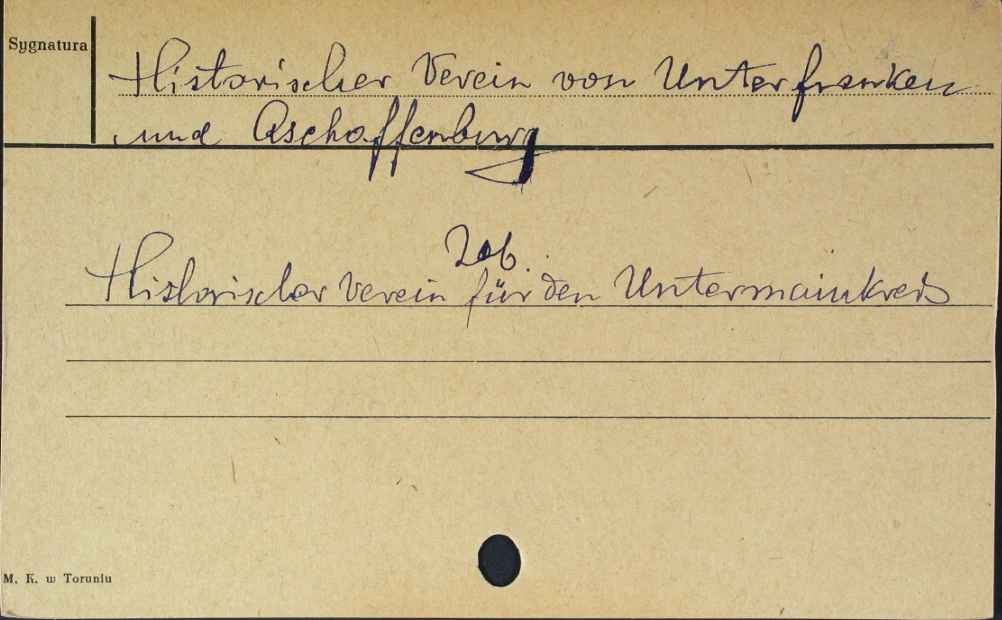 Sygnatura
Historischer Verein von Unterfranken
und Aschaffenburg
Zob.
Historischer Verein für den Untermainkreis
M. K. w Toruniu